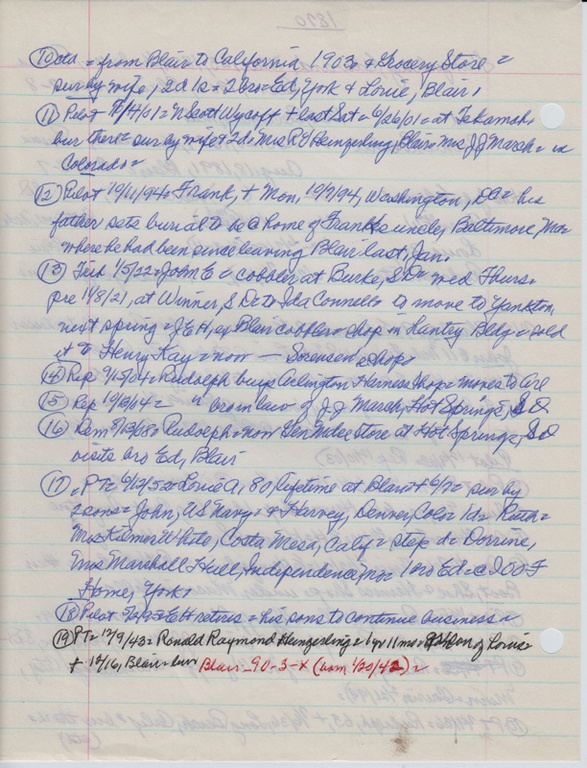 1870
(10) ctd = from Blair to California 1903 & Grocery Store =
sur by wife, 2d 1s = 2 bro = Ed, York & Louie, Blair,
(11) Pilot = N Scott Wycoff + last Sat = 6/26/01 = at Tekamah,
bur there = sur by wife & 2d = Mrs R E Hungerling, Blair = Mrs J J March = in
Colorado =
(12) Pilot 10/11/94 = Frank, + Mon, 10/7/94, Washington, DC = his
father sets burial to be @ home of Frank's uncle, Baltimore,
where he had been since leaving Blair last, Jan,
(13) 1/5/22 = John E = cobbler at Burke, S D = wed Thurs =
pre 11/8/21, at Winner, S D = to Ida Connells = to move to Yankton
next spring = J E H, ex Blair cobbler = shop in Lantry Bldg = sold
it to Henry Kay = now — Sorensen shop =
(14) Rep 9/15/04 = Rudolph buys Arlington Harness shop = moves to Arl
(15) Rep 10/13/04 = " bro in law of J J March, Hot Springs, S D
(16) Dem 8/13/08 = Rudolph = now Gen Mdse Store at Hot Springs, S D
visits bro Ed, Blair
(17) PT = 6/12/52 = Louie A, 80, lifetime at Blair + 6/7 = sur by
2 sons = John, US Navy, & Harvey, Denver, Colo 1d = Ruth =
Mrs Palmer White, Costa Mesa, Calif = step d = Dorrine,
Mrs Marshall Hull, Independence, Mo = 1 bro Ed = @ IOOF
Home, York,
(18) Pilot = E H retires = his sons to continue business =
(19) PT = 12/9/43 = Ronald Raymond Hungerling = 1 yr 11 mo = son of Louis =
+ 12/16, Blair = bur Blair - 90-3-X (born 1/20/42) =